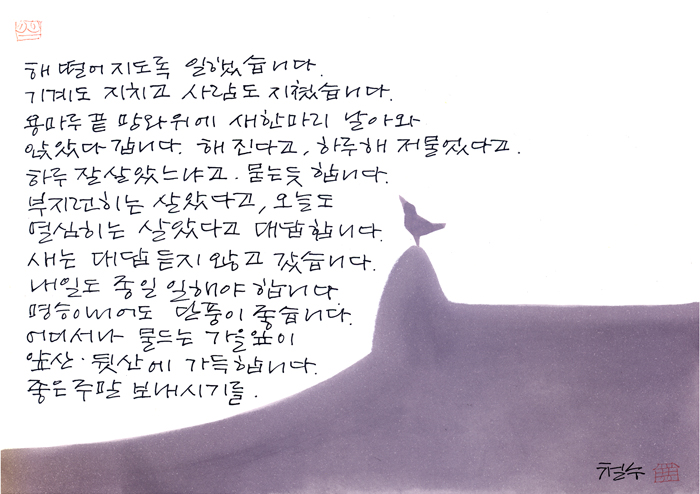 해 떨어지도록 일했습니다.
기계도 지치고 사람도 지쳤습니다.
용마루 끝 망와위에 새한마리 날아와
앉았다 갑니다. 해 진다고, 하루해 저물었다고.
하루 잘살았느냐고. 묻는듯 합니다.
부지런히는 살았다고, 오늘도
열심히는 살았다고 대답합니다.
새는 대답 듣지 않고 갔습니다.
내일도 종일 일해야 합니다
명승 아니어도 단풍이 좋습니다.
어디서나 물드는 가을잎이
앞산·뒷산에 가득합니다.
좋은 주말 보내시기를.
철수